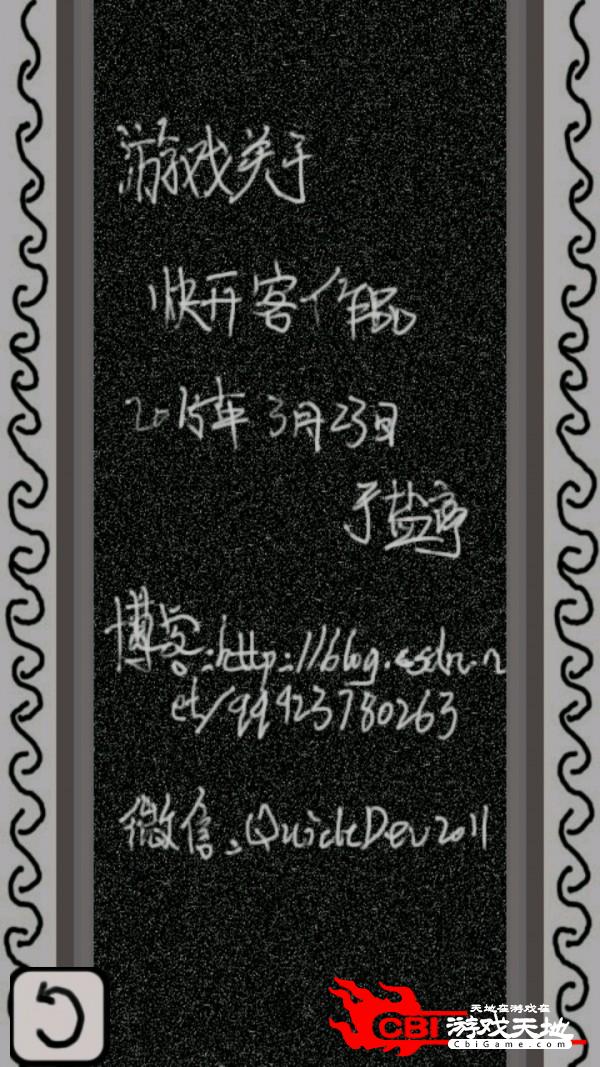 游戏关于
快开客作品
2015年3月23日
于盐亭
博客:http://blog.csdn.n
et/qq923780263
微信:QuickDev2011
天地在游戏在
CBI游戏天地
CbiGame.com